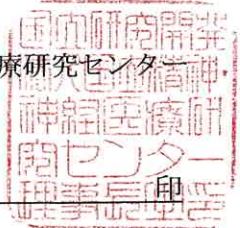 療研究センター
国立研究開発
法人国立精神
神経医療研
究センター
理事長
印